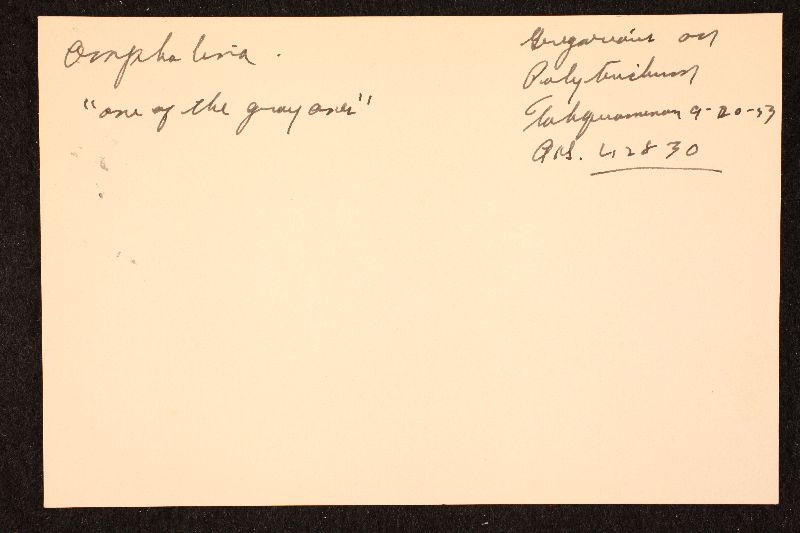 Omphalina.
"one of the gray ones"
Gregarious on
Polytrichum
Tahquamenon 9-20-53
AHS. 42830